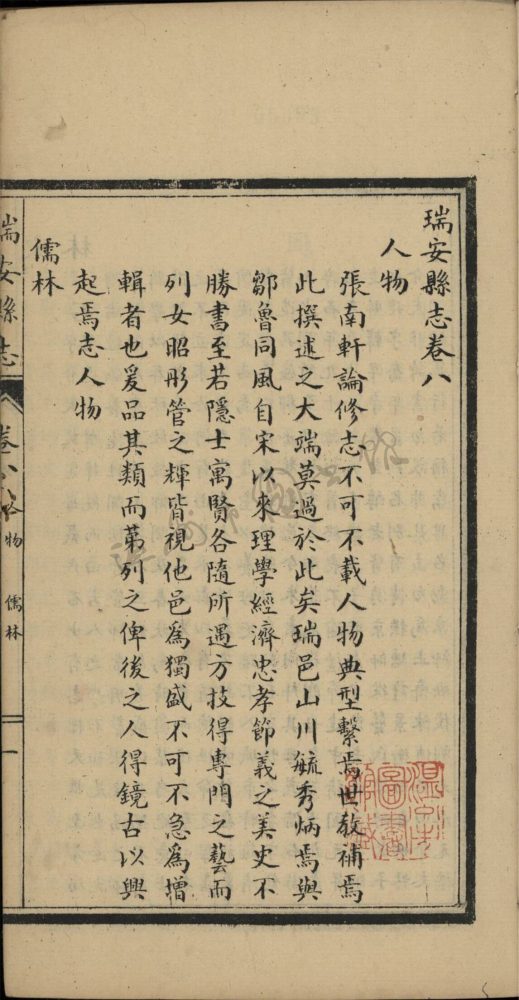 瑞安縣志卷八
人物
張南軒論修志不可不載人物典型繫焉世教補焉
此撰述之大端莫過於此矣瑞邑山川毓秀炳焉與
鄒魯同風自宋以來理學經濟忠孝節義之美史不
勝書至若隱士寓賢各隨所遇方技得專門之藝而
列女昭彤管之輝皆視他邑為獨盛不可不急為增
輯者也爰品其類而苐列之俾後之人得鏡古以興
起焉志人物
儒林
瑞安縣志 卷八 人物 儒林 一
溫州市圖書館藏